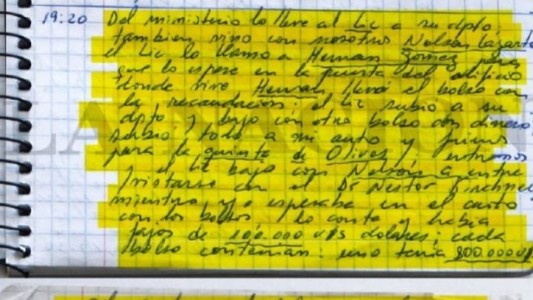 19:20 Del ministerio lo lleve al Lic a su dpto;
tambien vino con nosotros Nelson Lazarte
el Lic lo llamo a Hernan Gomez para
que lo espere en la puerta del edificio
donde vive Hernan, llevó el bolso con
la recaudacion; el Lic subio a su
dpto y bajo con otro bolso con dinero
subió todo a mi auto y fuimos
para la quinta de Olivos, entramos
y el Lic bajo con Nelson a entre
vistarse con el Dr Nestor
mientras yo esperaba en el auto
con los bolsos, lo conte y habia
fajos de 100.000 U$S dolares; cada
bolso contenian: uno tenia 800.000 U$
LA NACION